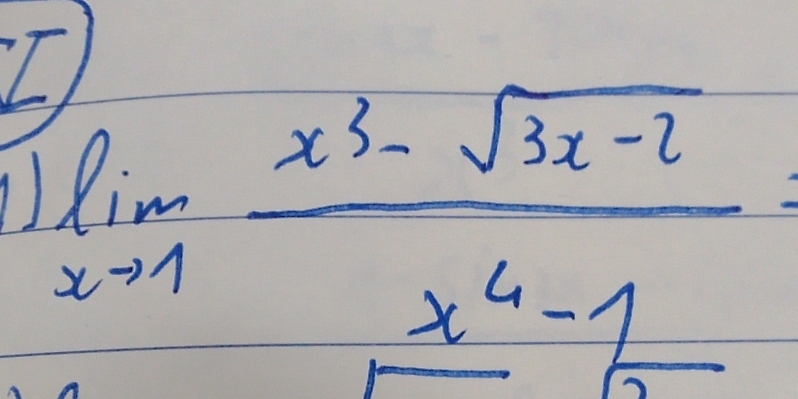 1) lim x→1 (x³ - √(3x - 2)) / (x⁴ - 1) =